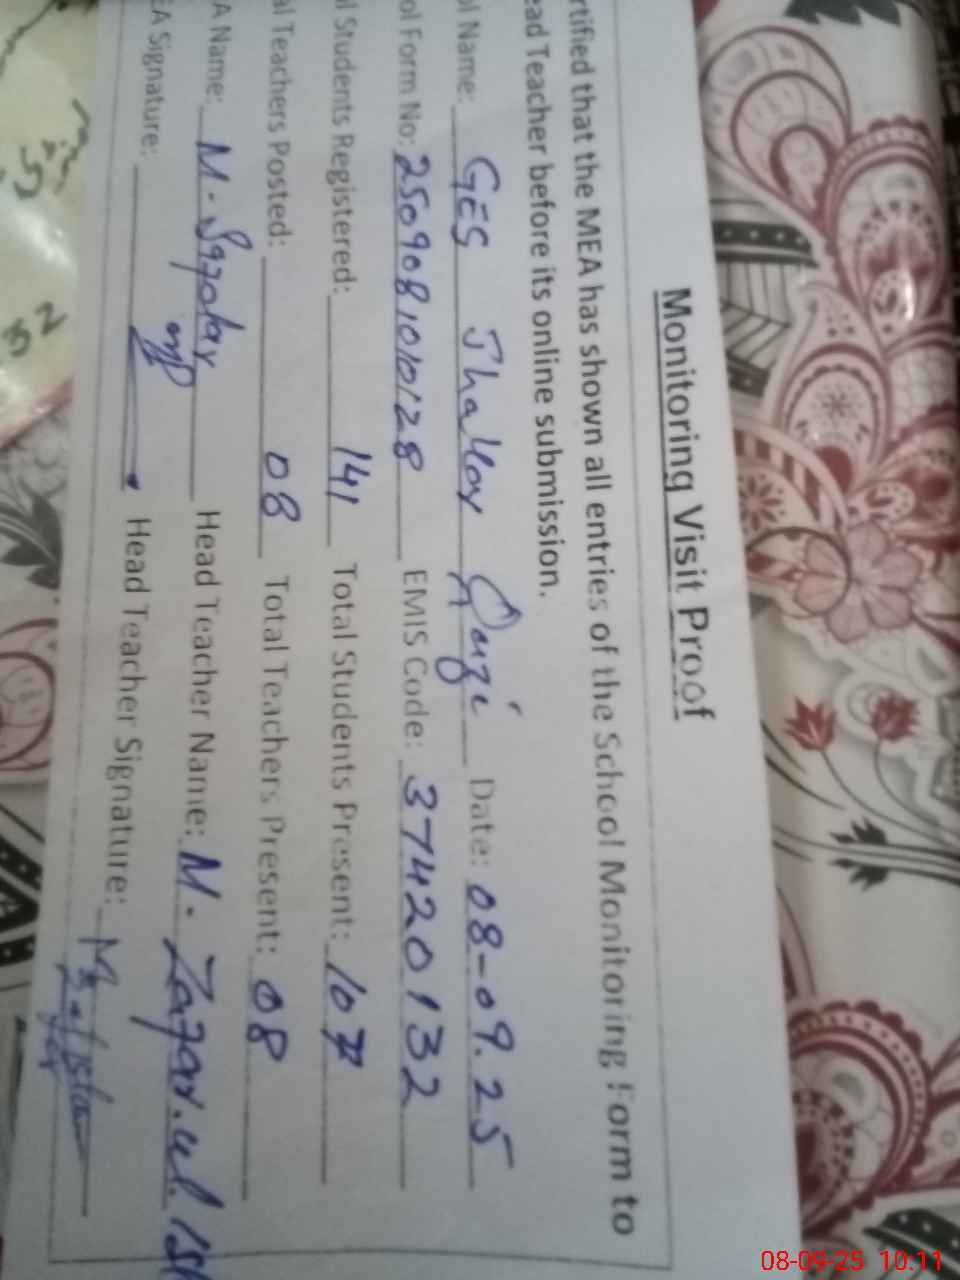 Monitoring Visit Proof
rtified that the MEA has shown all entries of the School Monitoring Form to
ead Teacher before its online submission.
ol Name: GES Date: 08-09.25
ol Form No: 2509081010128 EMIS Code: 37420132
l Students Registered: 141 Total Students Present: 107
al Teachers Posted: 08 Total Teachers Present: 08
A Name: M. Head Teacher Name: M. Zafar.ul.Isl
EA Signature: Head Teacher Signature:
08-09-25 10:11